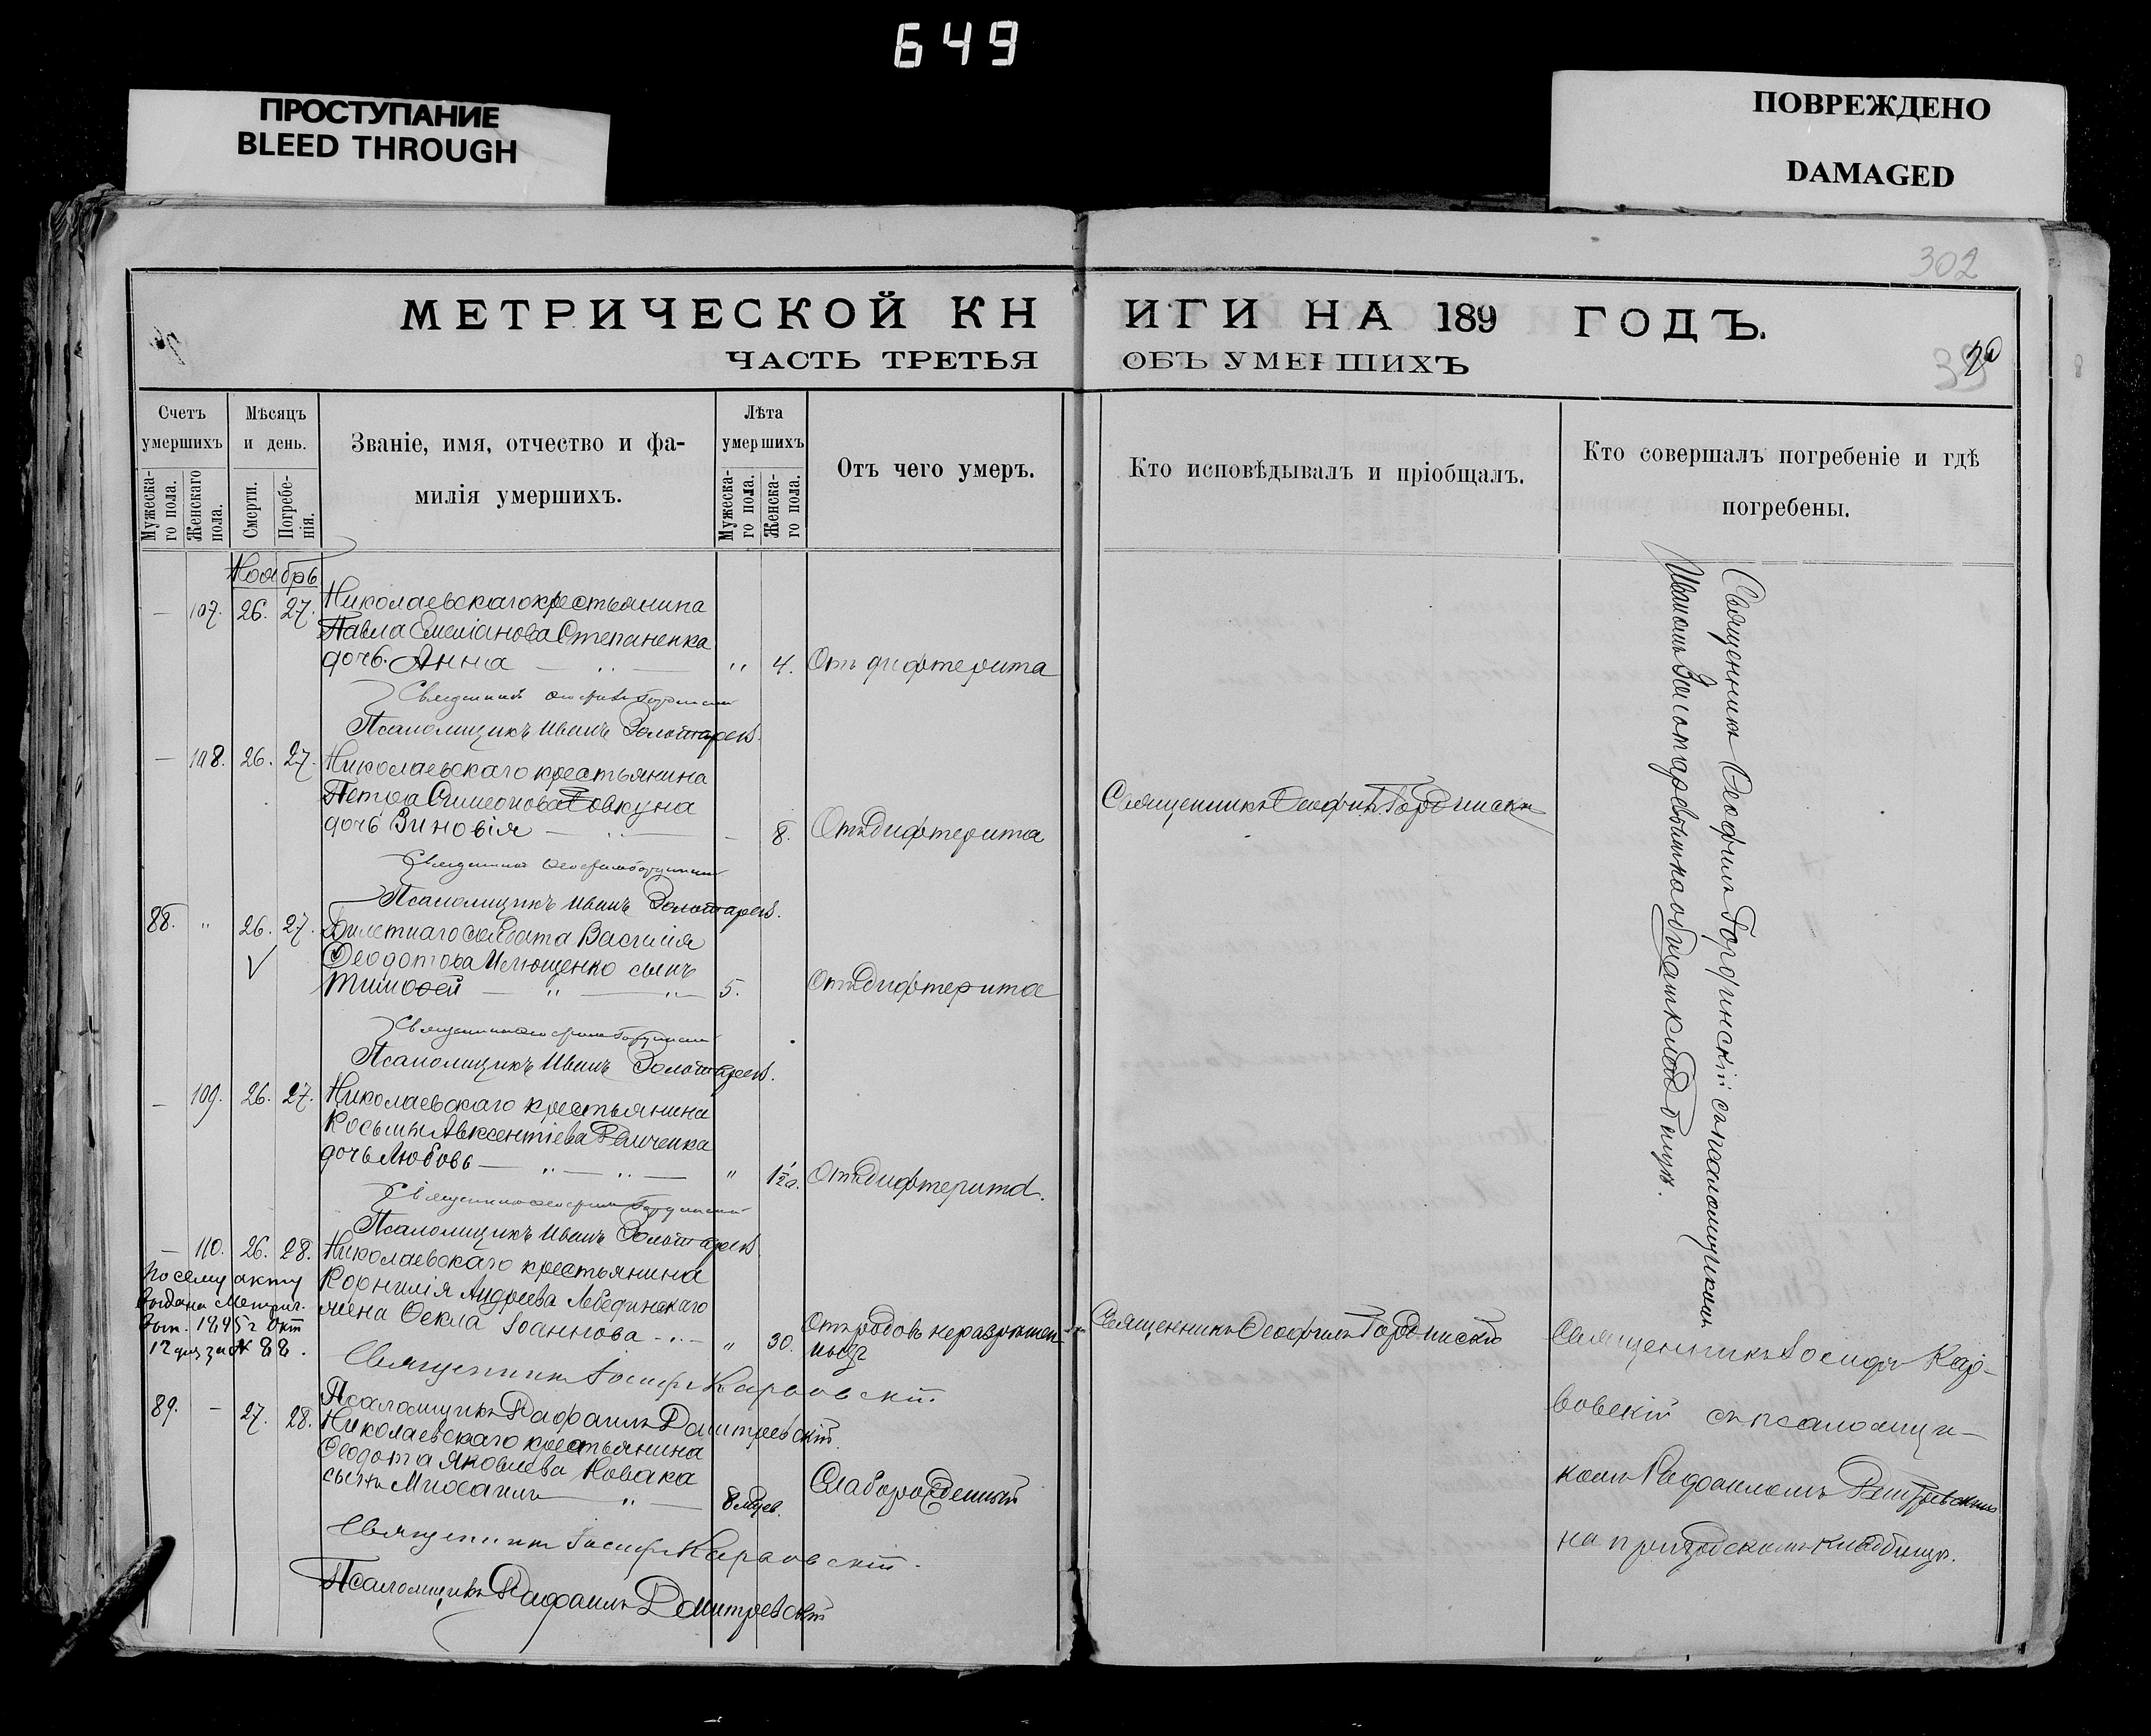 649
ПРОСТУПАНИЕ
BLEED THROUGH
ПОВРЕЖДЕНО
DAMAGED
302
МЕТРИЧЕСКОЙ КНИГИ НА 189 ГОДЪ.
ЧАСТЬ ТРЕТЬЯ ОБЪ УМЕРШИХЪ
Счетъ умершихъ
Мужеска-го пола.
Женскаго пола.
Мѣсяцъ и день.
Смерти.
Погребе-нія.
Званіе, имя, отчество и фа-
милія умершихъ.
Лѣта умершихъ
Мужеска-го пола.
Женска-го пола.
Отъ чего умеръ.
Кто исповѣдывалъ и пріобщалъ.
Кто совершалъ погребеніе и гдѣ
погребены.
Ноябрь
— 107. 26. 27. Николаевскаго крестьянина
Павла Емеліанова Степаненка
дочь Анна — „ — „ 4. Отъ дифтерита
Священникъ Ѳеофилъ Гординскій
Псаломщикъ Иванъ Золотаревъ.
— 108. 26. 27. Николаевскаго крестьянина
Петра Симеонова Товкуна
дочь Зиновія — — 8. Отъ дифтерита
Священникъ Ѳеофилъ Гординскій
Священникъ Ѳеофилъ Гординскій
Псаломщикъ Иванъ Золотаревъ.
88. „ 26. 27. Билетнаго солдата Василія
Ѳеодотова Илющенко сынъ
Тимоѳей — „ — „ — 5. Отъ дифтерита
Священникъ Ѳеофилъ Гординскій
Псаломщикъ Иванъ Золотаревъ.
— 109. 26. 27. Николаевскаго крестьянина
Косьмы Авксентіева
дочь Любовь — „ — „ — „ 1½ Отъ дифтерита.
Священникъ Ѳеофилъ Гординскій
Псаломщикъ Иванъ Золотаревъ.
Священникъ Ѳеофилъ Гординскій съ псаломщикомъ
Иваномъ Золотаревымъ на кладбищѣ.
— 110. 26. 28. Николаевскаго крестьянина
Корнилія Андреева Лебединскаго
жена Ѳекла Іоаннова — „ — „ 30. Отъ родовъ неразрѣшен-
ныхъ
По сему акту
выдана Метрич.
вып. 1945 г Окт
12 дня за № 88.
Священникъ Ѳеофилъ Гординскій
Священникъ Іосифъ Кар-
Священникъ Іосифъ Карвовскій
вовскій съ псаломщи-
Псаломщикъ Рафаилъ Дмитревскій.
89. — 27. 28. Николаевскаго крестьянина
Ѳеодота Яковлева Новака
сынъ Михаилъ — „ — 8 мѣсяц. Слаборожденный
комъ Рафаиломъ Дмитревскимъ
Священникъ Іосифъ Карвовскій.
на приходскомъ кладбищѣ.
Псаломщикъ Рафаилъ Дмитревскій